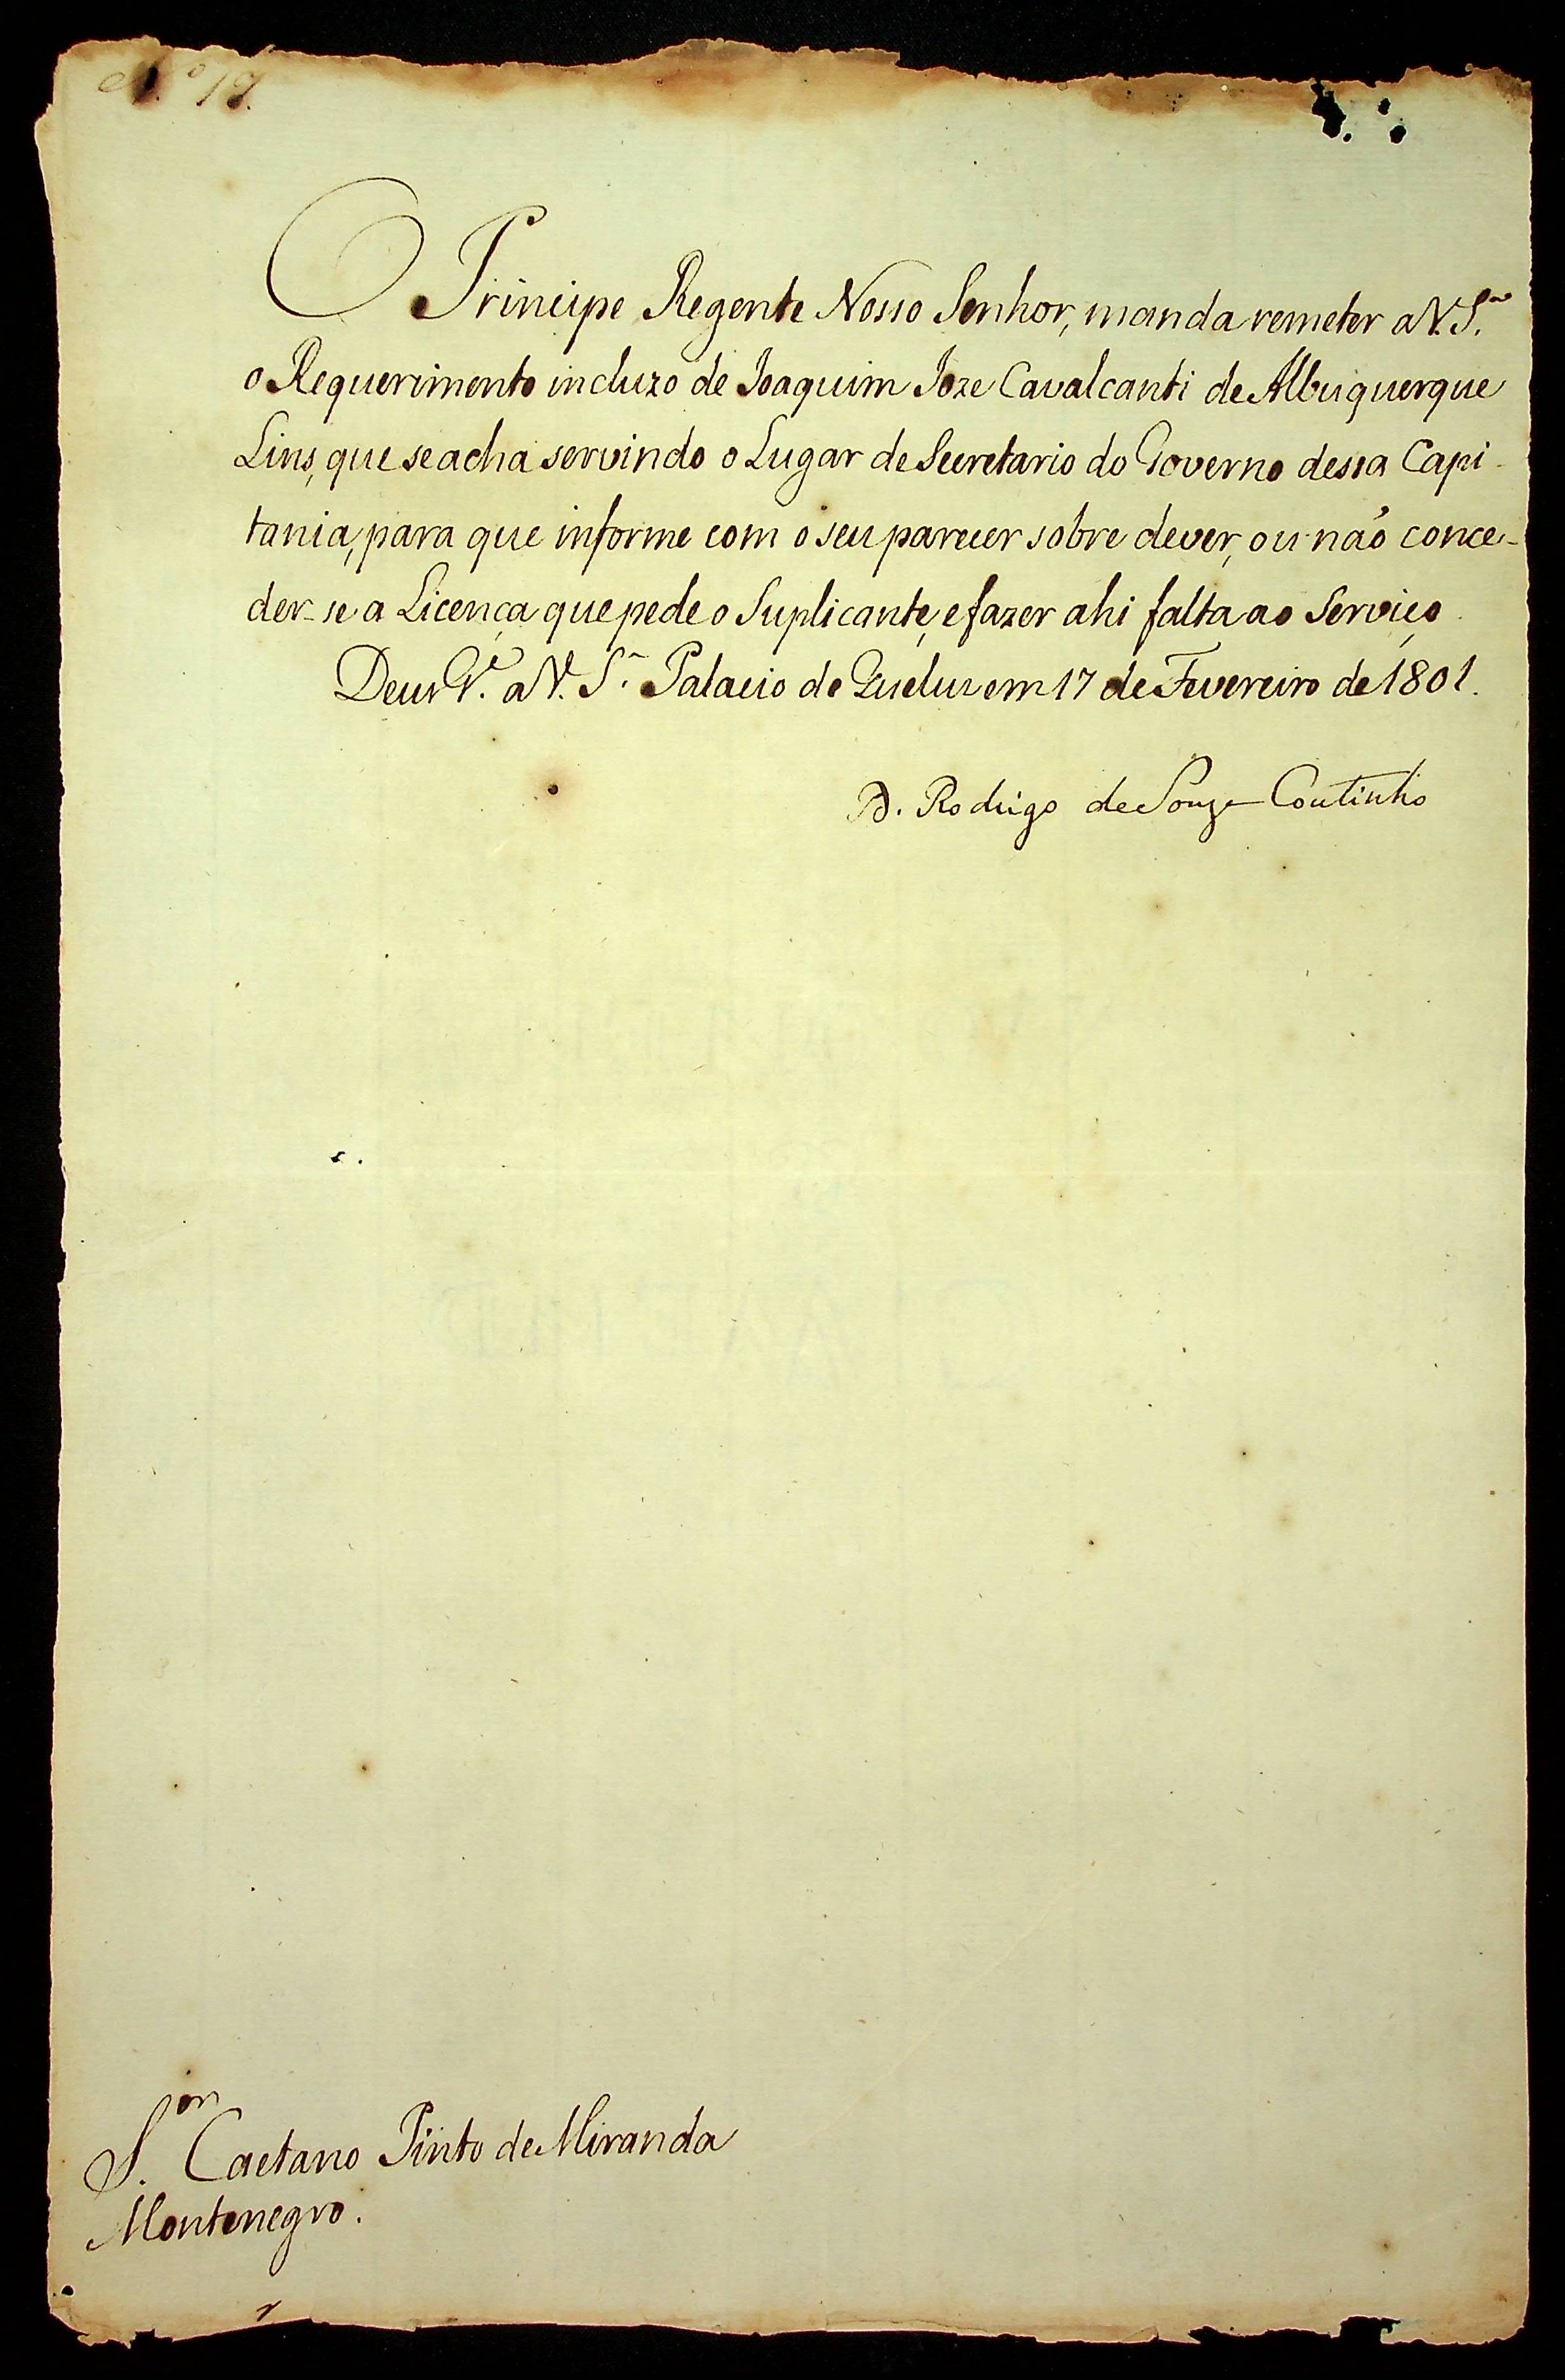 N.º 19.
O Principe Regente Nosso Senhor, manda remeter a V. S.ª
o Requerimento incluzo de Joaquim Joze Cavalcanti de Albuquerque
Lins, que se acha servindo o Lugar de Secretario do Governo dessa Capi-
tania, para que informe com o seu parecer sobre dever, ou não conce-
der-se a Licença que pede o Suplicante, e fazer ahi falta ao Serviço.
Deus G.e a V. S.ª Palacio de Queluz em 17 de Fevereiro de 1801.
D. Rodrigo de Souza Coutinho
S.or Caetano Pinto de Miranda
Montenegro.